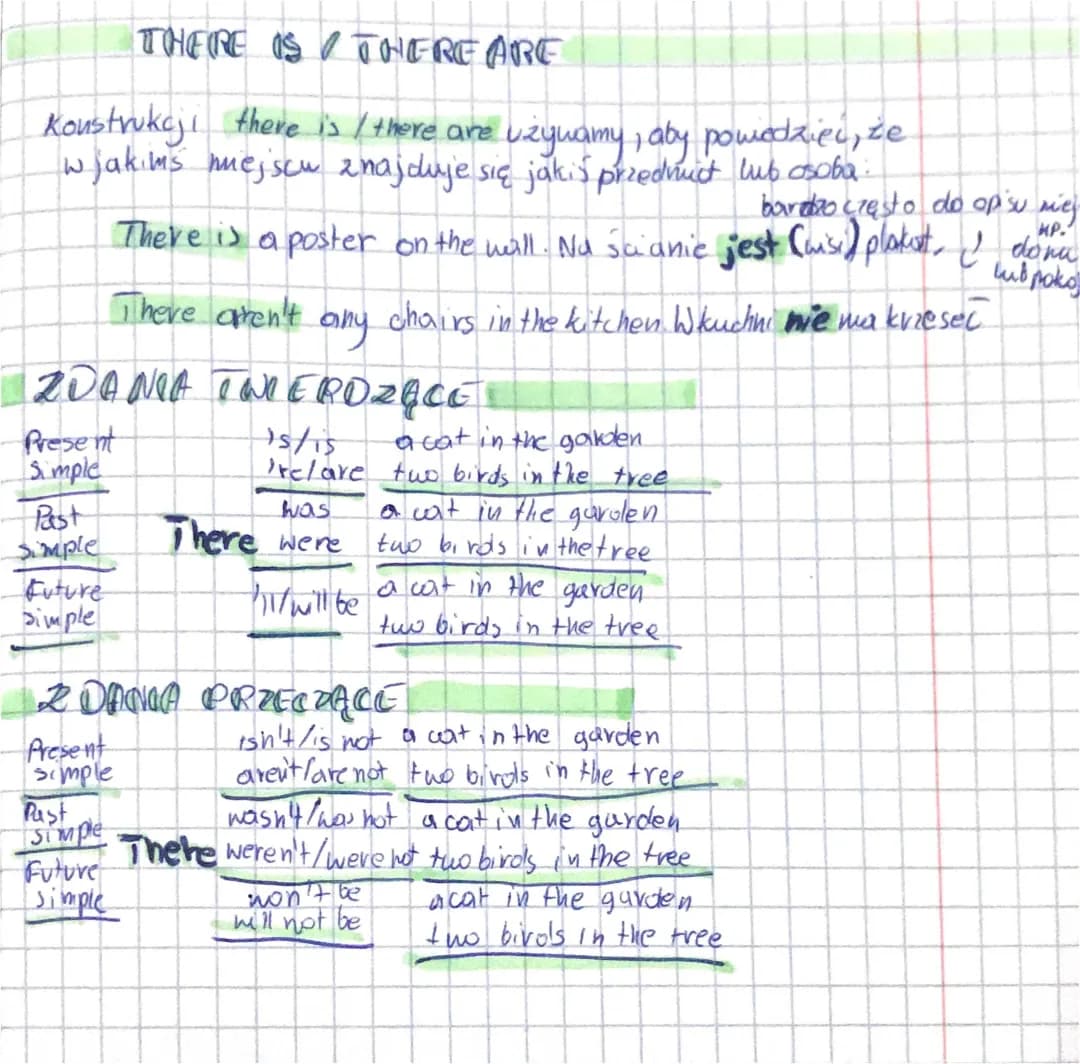 THERE IS / THERE ARE
Konstrukcji there is / there are używamy, aby powiedzieć, że
w jakimś miejscu znajduje się jakiś przedmiot lub osoba.
bardzo często do opisu miej
There is a poster on the wall. Na ścianie jest (wisi) plakat.
np.
domu
lub pokoj
There aren't any chairs in the kitchen. W kuchni nie ma krzeseł
ZDANIA TWIERDZĄCE
Present 's/is a cat in the garden
simple 're/are two birds in the tree
Past was a cat in the garden
simple There were two birds in the tree
Future a cat in the garden
simple 'll/will be
two birds in the tree
ZDANIA PRZECZĄCE
Present isn't/is not a cat in the garden
simple aren't/are not two birds in the tree
Past wasn't/was not a cat in the garden
simple There weren't/were not two birds in the tree
Future won't be a cat in the garden
simple will not be
two birds in the tree